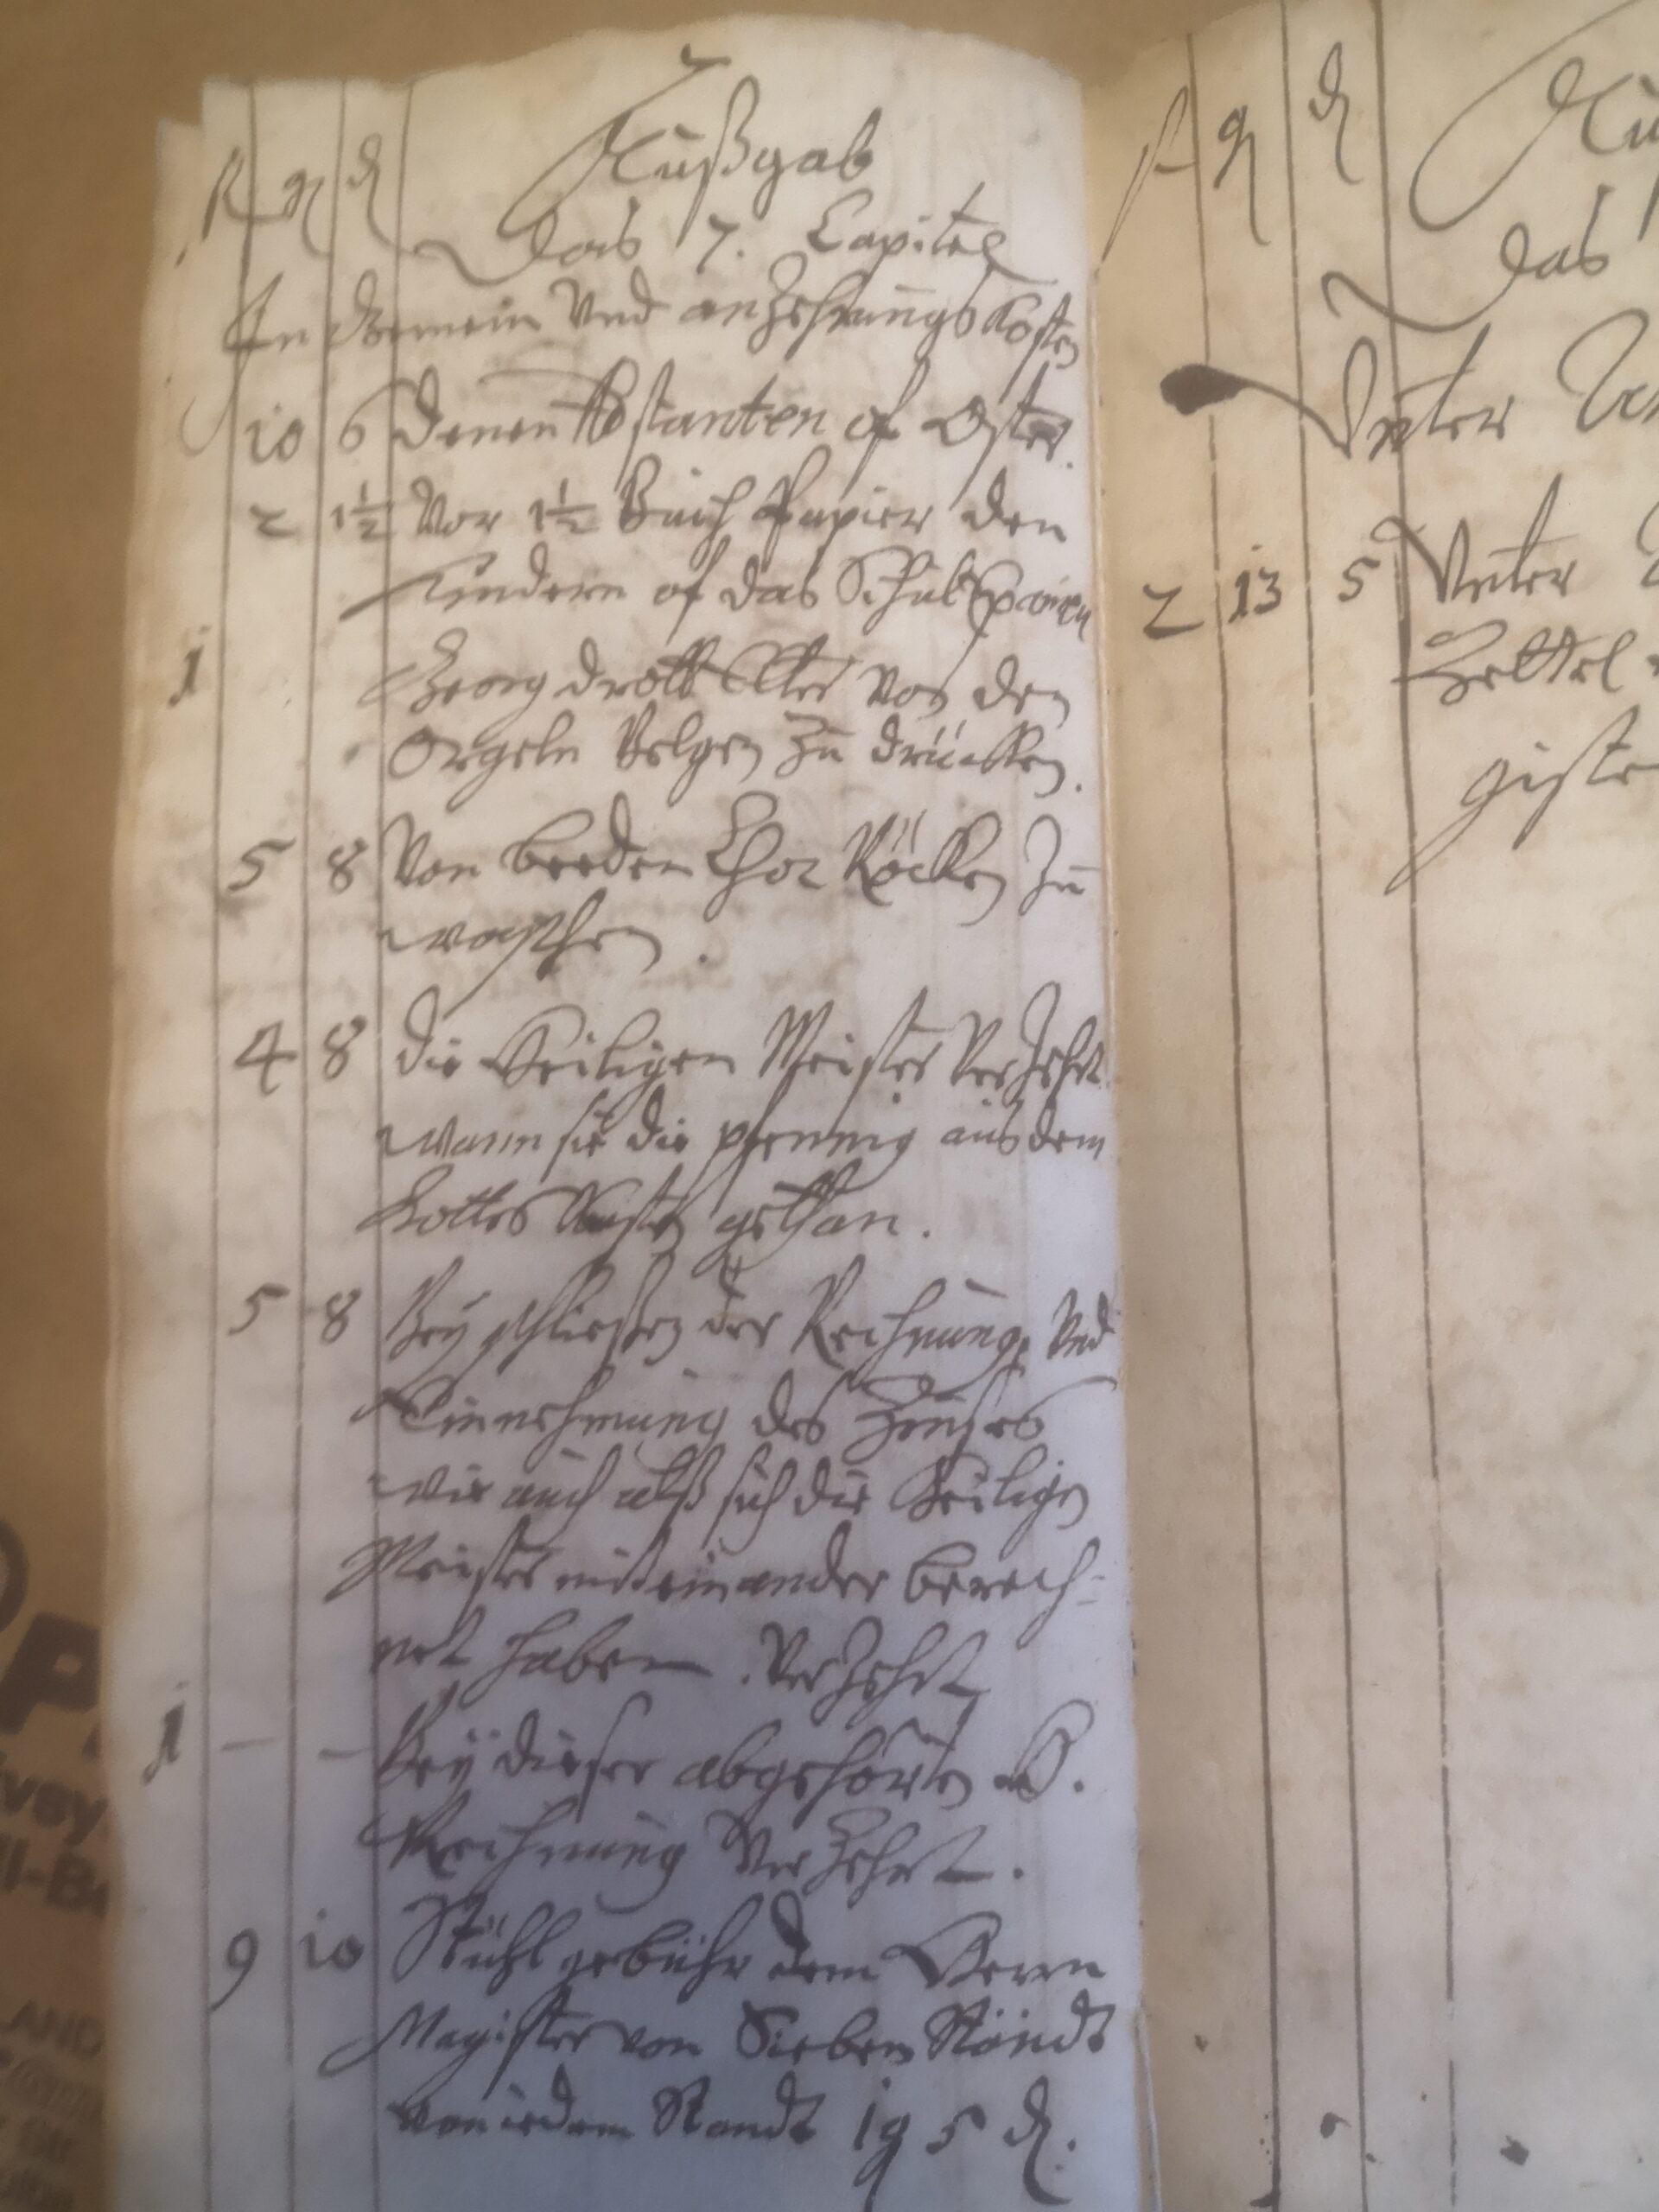 fl g d Außgab
Das 7. Capitel
In Gemein Vnd an Zehrungs Kosten
10 6 Denen of Oster.
2 1½ Vor 1½ Buch Papier den
Kindern of das Schul Examen
1 Georg Vor den
Orgeln Belgen zu drücken.
5 8 Von beeden Chor Röcken zu
waschen.
4 8 die Heiligen Meister VerZehrt
wann sie die pfennig aus dem
Gottes Kasten gethan.
5 8 Bey schliessen der Rechnung, Vnd
Einnehmung des Zinses
wie auch alß sich die Heiligen
Meister mit einander berech-
net haben. VerZehrt
1 — — Bey dieser abgehörten
Rechnung VerZehrt.
9 10 Stuhl gebühr dem Herrn
Magister von Sieben Ständt
von iedem Standt 1 g 5 d.
fl g d
Das
Vnter
2 13 5 Vnter
Zettel
giste